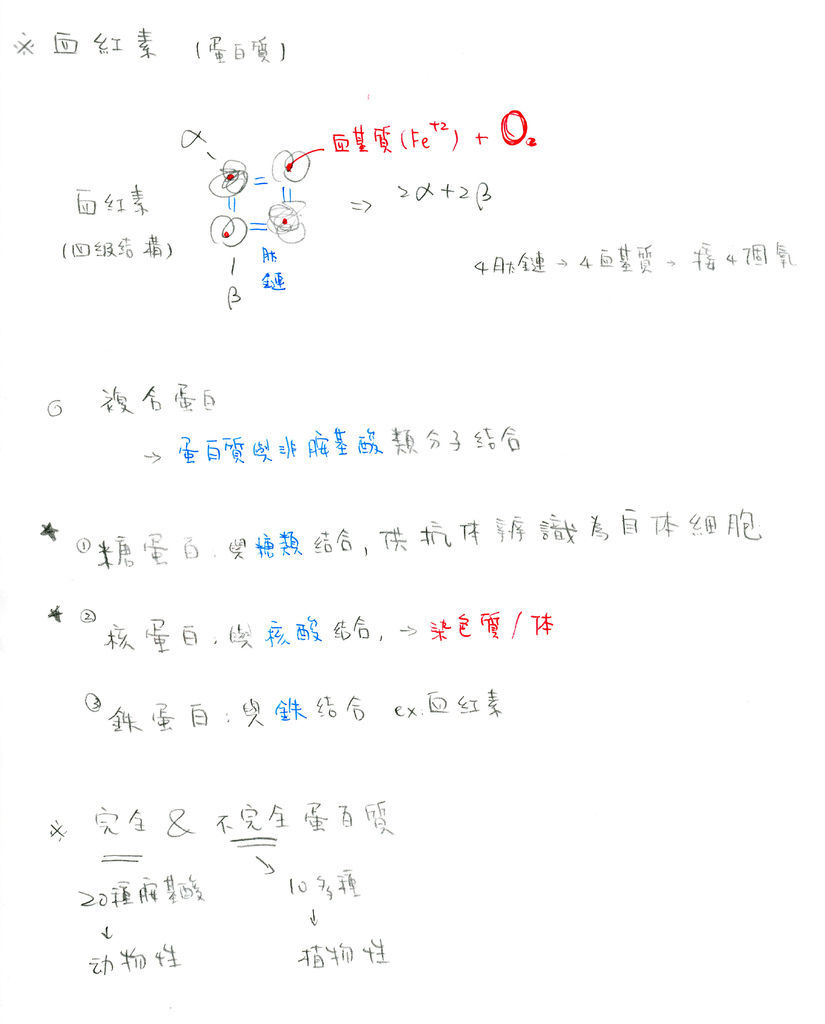 ※ 血紅素 (蛋白質)
α
血基質(Fe⁺²) + O₂
血紅素
(四級結構)
⇒ 2α+2β
肽
鏈
β
4肽鏈 → 4血基質 → 接4個氧
◎ 複合蛋白
→ 蛋白質與非胺基酸類分子結合
★ ①糖蛋白:與糖類結合, 供抗体辨識為自体細胞
★ ②核蛋白:與核酸結合, → 染色質/体
③鉄蛋白:與鉄結合 ex.血紅素
※ 完全 & 不完全蛋白質
20種胺基酸 10多種
↓ ↓
动物性 植物性